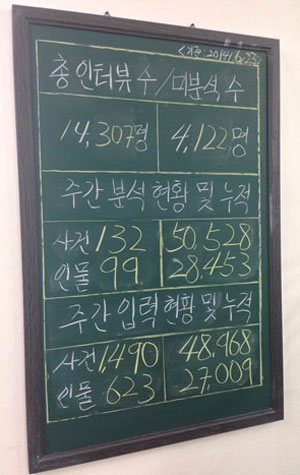 <기준: 2014.6.23>
총 인터뷰 수 / 미분석 수
14,307명 4,122명
주간 분석 현황 및 누적
사건 132 50,528
인물 99 28,453
주간 입력 현황 및 누적
사건 1,490 48,968
인물 623 27,009